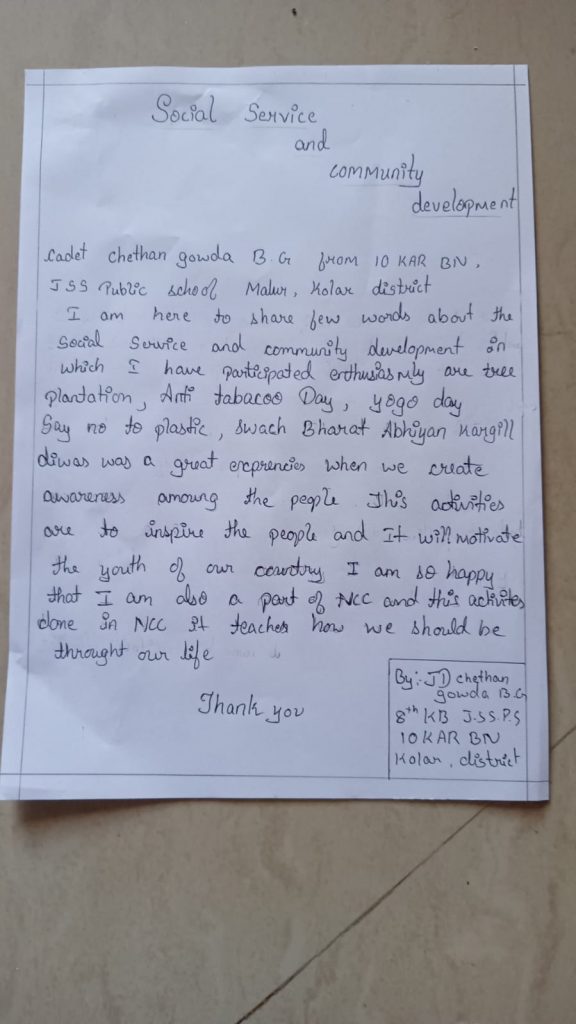 Social Service
and
community
development
Cadet chethan gowda B.G from 10 KAR BN,
JSS Public school Malur, Kolar district
I am here to share few words about the
Social Service and community development in
which I have participated enthusiasmly are tree
plantation, Anti tabacoo Day, yogo day
Say no to plastic, swach Bharat Abhiyan Kargill
diwas was a great exprencies when we create
awareness amoung the people This activities
are to inspire the people and It will motivate
the youth of our cowtry I am so happy
that I am also a part of NCC and this activites
done in NCC it teaches how we should be
throught our life
Thank you
By:- JD chethan
gowda B.G
8th KB J.S.S.P.S
10 KAR BN
Kolar, district